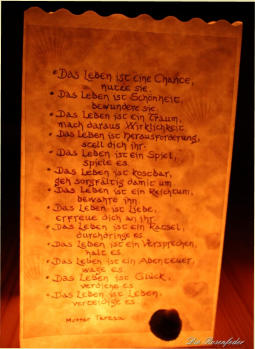 • Das Leben ist eine Chance,
nutze sie.
• Das Leben ist Schönheit,
bewundere sie.
• Das Leben ist ein Traum,
mach daraus Wirklichkeit
• Das Leben ist Herausforderung,
stell dich ihr.
• Das Leben ist ein Spiel,
spiele es.
• Das Leben ist kostbar,
geh sorgfältig damit um
• Das Leben ist ein Reichtum,
bewahre ihn
• Das Leben ist Liebe,
erfreue dich an ihr
• Das Leben ist ein Rätsel,
durchdringe es.
• Das Leben ist ein Versprechen,
halt es.
• Das Leben ist ein Abenteuer,
wage es.
• Das Leben ist Glück,
verdiene es
• Das Leben ist Leben,
verteidige es.
Mutter Teresa
Die Rosenfeder